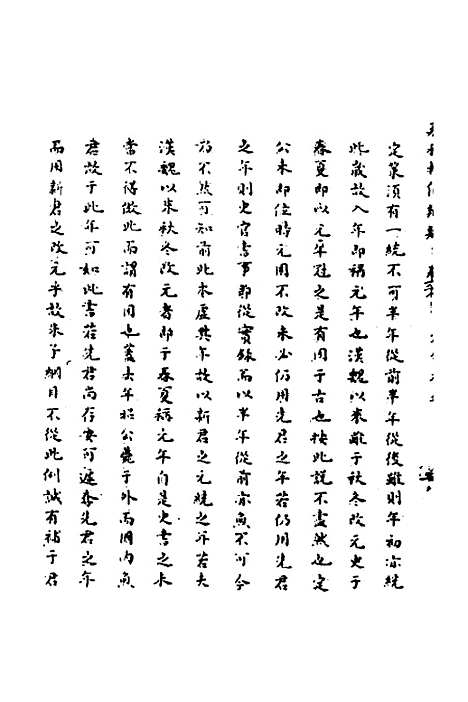 定策須有一統不可半年從前半年從後雖則年初亦統
此歲故入年即稱元年也漢魏以來雖于秋冬改元史于
春夏即以元年冠之是有因于古也按此說不盡然也定
公未即位時元固不改未必仍用先君之年若仍用先君
之年則史官書事即從實錄焉以半年從前亦無不可今
前不然可知前此未虛其年故以新君之元統之年若夫
漢魏以來秋冬改元者即于春夏稱元年自是史書之失
當不得倣此而謂有因也蓋去年昭公薨于外而國內無
君故于此年可如此書若先君尚存安可遽奪先君之年
而用新君之改元乎故朱子綱目不從此例誠有補于君